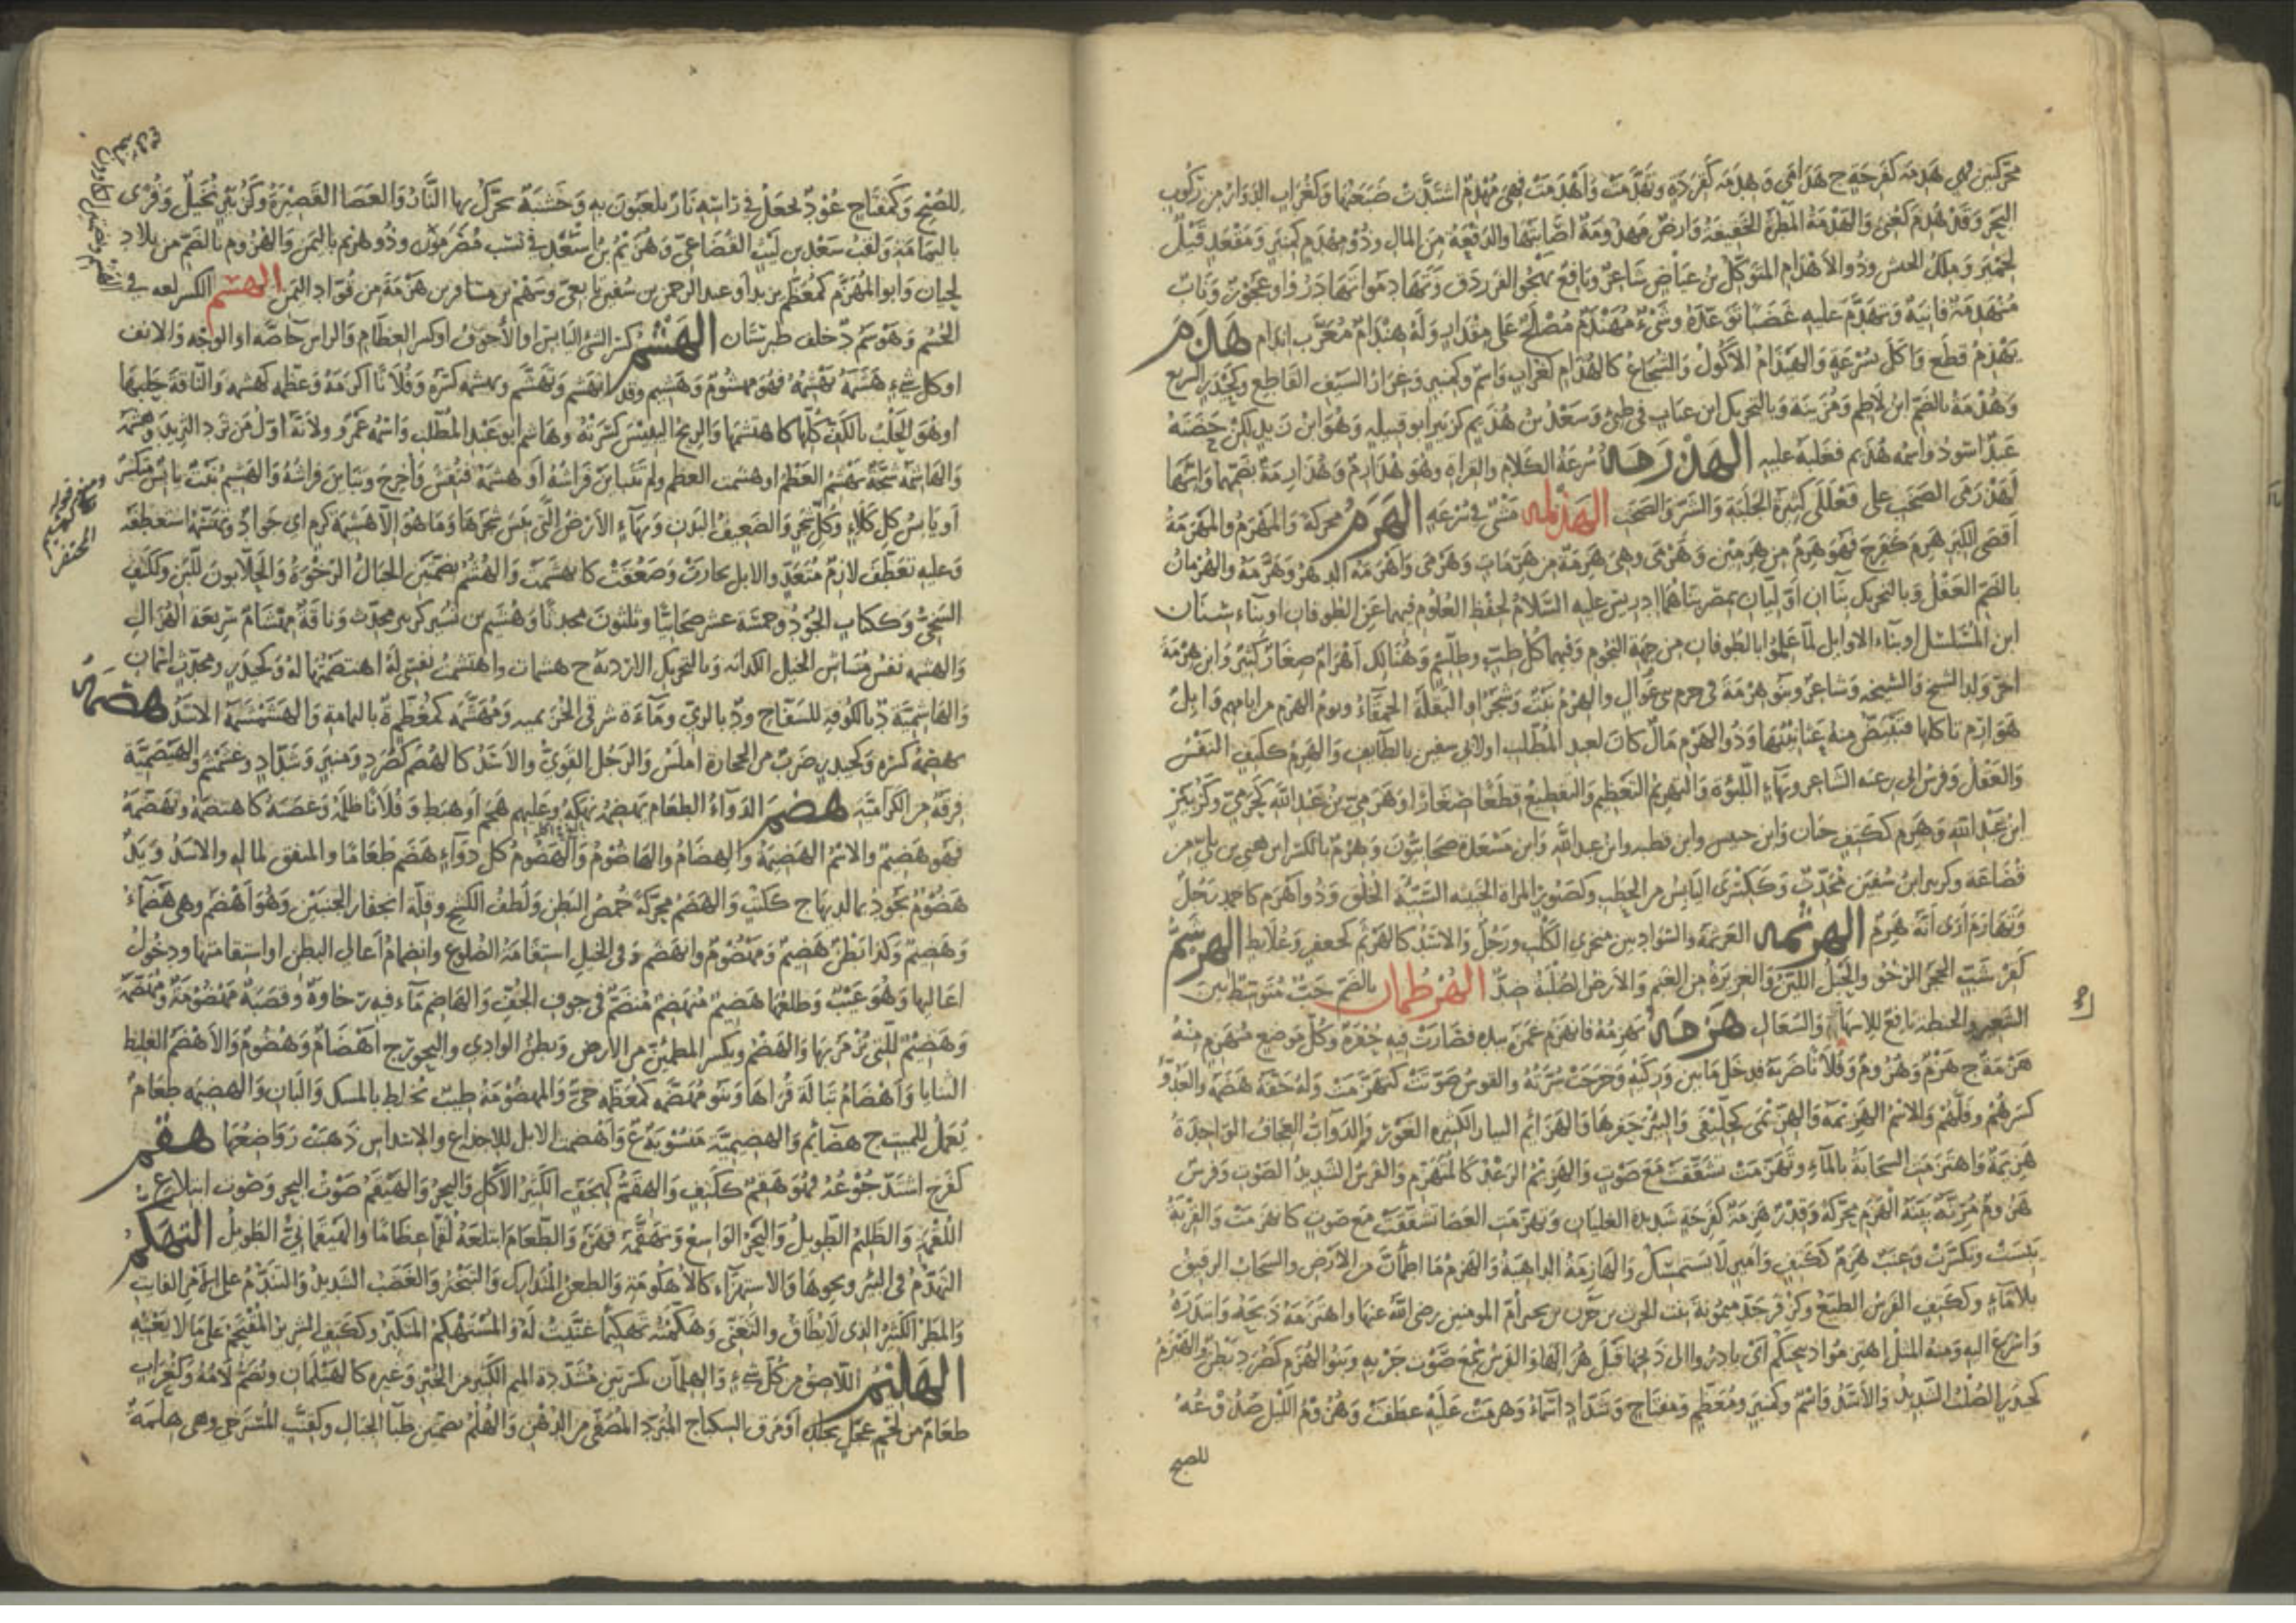 محركتين فهي هدمة كفرحة ج هدامى وهدمة كقردة وتهدمت وأهدمت فهي مهدم اشتدت ضبعتها وكغراب الدوار من ركوب
البحر وقد هدم كعني والهدمة المطرة الخفيفة وأرض مهدومة أصابتها والدفعة من المال وذو مهدم كمنبر ومقعد قيل
لحمير وملك للحبش وذو الأهدام المتوكل بن عياض شاعر ونافع مهجو الفرزدق وتهادموا تهادروا وعجوز وناب
متهدمة فانية وتهدم عليه غضبا توعده وشيء مهندم مصلح على مقدار وله هندام معرب اندام هذم
يهذم قطع وأكل بسرعة والهيذام الأكول والشجاع كالهذام كغراب واسم وكمنبر وغراب السيف القاطع وكحيدر السريع
وهذمة بالضم ابن لاطم في مزينة وبالتحريك ابن عتاب في طيئ وسعد بن هذيم كزبير أبو قبيلة وهو ابن زيد لكن حضنه
عبد أسود اسمه هذيم فغلب عليه الهذرمة سرعة الكلام والقراءة وهو هذارم وهذارمة بضمهما وإنها
لهذرمى الصخب على فعللى كثيرة الجلبة والشر والصخب الهذلمة مشي في سرعة الهرم محركة والمهرم والمهرمة
أقصى الكبر هرم كفرح فهو هرم من هرمين وهرمى وهي هرمة من هرمات وهرمى وأهرمه الدهر وهرمه والهرمان
بالضم العقل وبالتحريك بناآن أوليان بمصر بناهما إدريس عليه السلام لحفظ العلوم فيهما عن الطوفان أو بناء سنان
ابن المشلشل أو بناء الأوائل لما علموا بالطوفان من جهة النجوم وفيهما كل طب وطلسم وهنالك أهرام صغار كثيرة وابن هرمة
آخر ولد الشيخ والشيخة وشاعر وبئر هرمة في حرم بني عوال والهرم نبت وشجر أو البقلة الحمقاء ويوم الهرم من أيامهم وإبل
هوارم تأكلها فتبيض منها عثانينها وذو الهرم مال كان لعبد المطلب أو لأبي سفين بالطائف والهرم ككتف النفس
والعقل وفرس أبي زعنة الشاعر وبهاء اللبوة والتهريم التعظيم والتقطيع قطعا صغارا وهرمي بن عبد الله كجرمي وكزبير
ابن عبد الله وهرم ككتف حيان وابن خنبش وابن قطبة وابن عبد الله وابن مسعدة صحابيون وهرم بالكسر ابن هني بن بلي من
قضاعة وكزبير ابن سفين محدث وكسكرى اليابس من الحطب وكصبور المرأة الخبيثة السيئة الخلق وذو أهرم كأحمد رجل
وتهارم أرى أنه هرم الهرثمة العرتمة والسواد بين منخري الكلب ورجل والأسد كالهرثم كجعفر وعلابط الهرشم
كقرشب الحجر الرخو والجبل اللين والغزيرة من الغنم والأرض الصلبة ضد الهرطمان بالضم حب متوسط بين
الشعير والحنطة نافع للإسهال والسعال هزمه يهزمه فانهزم غمزه بيده فصارت فيه حفرة وكل موضع منهزم منه
هزمة ج هزم وهزوم وفلانا ضربه فدخل ما بين وركيه وخرجت سرته والقوس صوتت كتهزمت وله حقه هضمه والعدو
كسرهم وفلهم والاسم الهزيمة والهزيمى كخليفى والبئر حفرها والهزائم البئار الكثيرة الغزر والدواب العجاف الواحدة
هزيمة واهتزمت السحابة بالماء وتهزمت تشققت مع صوت والهزيم الرعد كالمتهزم والفرس الشديد الصوت وفرس
هزوم مرنة بينة الهزم محركة وقدر هزمة كفرحة شديدة الغليان وتهزمت العصا تشققت مع صوت كانهزمت والقربة
يبست وتكسرت وغيث هزم ككتف وأمير لا يستمسك والهازمة الداهية والهزم ما اطمأن من الأرض والسحاب الرقيق
بلا ماء وككتف الفرس الطيع وكزفر جد ميمونة بنت الحرث بن حزن بن بجير أم المومنين رضي الله عنها واهتزمه ذبحه وابتدره
وأسرع إليه ومنه المثل اهتزموا ذبيحتكم أي بادروا إلى ذبحها قبل هزالها والفرس سمع صوت جريه وبنو الهزم كصرد بطن والهيزم
كحيدر الصلب الشديد والأسد واسم وكمنبر ومعظم ومفتاح وشداد أسماء وهزمت عليه عطفت وهزوم الليل صدوعه
للصبح
للصبح وكمفتاح عود يجعل في رأسه نار يلعبون به وخشبة يحرك بها النار والعصا القصيرة وكزبير نخيل وقرى
باليمامة ولقب سعد بن ليث القضاعي وهزيم بن أسعد في نسب حضرموت وذو هزيم باليمن والهزوم بالضم من بلاد
لحيان وأبو المهزم كمعظم يزيد أو عبد الرحمن بن سفين تابعي وسهم بن مسافر بن هزمة من قواد اليمن الهسم الكسر لغة في
الهشم وهوسم د خلف طبرستان الهشم كسر الشيء اليابس أو الأجوف أو كسر العظام والرأس خاصة أو الوجه والأنف
أو كل شيء هشمه يهشمه فهو مهشوم وهشيم وقد انهشم وتهشم وهشمه كسره وفلانا أكرمه وعظمه كهشمه والناقة حلبها
أو هو الحلب بالكف كلها كاهتشمها والريح اليبيس كسرته وهاشم أبو عبد المطلب واسمه عمرو ولأنه أول من ثرد الثريد وهشمه
والهاشمة شجة تهشم العظم أو هشمت العظم ولم تتباين فراشه أو هشمته فنقش وأخرج وتباين فراشه والهشيم نبت يابس متكسر
أو يابس كل كلأ وكل شجر والضعيف البدن وبهاء الأرض التي يبس شجرها وما هو إلا هشيمة كرم أي جواد وتهشمه استعطفه
وعليه تعطف لازم متعد والإبل خارت وضعفت كانهشمت والهشم بضمتين الجبال الرخوة والحلابون للبن وككتف
السخي وككتاب الجود وخمسة عشر صحابيا وثلثون محدثا وهشيم بن بشير كزبير محدث وناقة مهشام سريعة الهزال
والهاشمية د بالكوفة للسفاح ود بالري وماءة شرقي الخزيمية ومهشمة كمعظمة باليمامة والهشمشمة الأسد هصمه
يهصمه كسره وكحيدر ضرب من الحجارة أملس والرجل القوي والأسد كالهصم كصرد ومنبر وشداد وغشمشم والهيصمية
فرقة من الكرامية هضم الدواء الطعام يهضمه نهكه وعليهم هجم أو هبط وفلانا ظلمه وغصبه كاهتضمه وتهضمه
فهو هضيم والاسم الهضيمة والهضام والهاضوم والهضوم كل دواء هضم طعاما والمنفق لماله والأسد ويد
هضوم تجود بما لديها ج ككتب والهضم محركة خمص البطن ولطف الكشح وقلة انجفار الجنبين وهو أهضم وهي هضماء
وهضيم وكذا بطن هضيم ومهضوم وأهضم وفي الخيل استقامة الضلوع وانضمام أعالي البطن أو استقامتها ودخول
أعاليها وهو عيب وطلعها هضيم منهضم منضم في جوف الجف والهاضم ما فيه رخاوة وقصبة مهضومة ومهضمة
وهضيم للتي يزمر بها والهضم ويكسر المطمئن من الأرض وبطن الوادي والبخور ج أهضام وهضوم والأهضم الغليظ
الثنايا وأهضام تبالة قراها وبنو مهضمة كمعظمة حي والمهضومة طيب تخلط بالمسك والبان والهضيمة طعام
يعمل للميت ج هضائم والهضيمية منسوبة ع وأهضمت الإبل للإجذاع والإسداس ذهبت رواضعها هقم
كفرح اشتد جوعه فهو هقم ككتف والهقم كهجف الكثير الأكل والبحر والهيقم صوت البحر وصوت ابتلاع
اللقمة والظليم الطويل والبحر الواسع وتهقمه قهره والطعام ابتلعه لقما عظاما والهيقماني الطويل التهكم
التهدم في البئر ونحوها والاستهزاء كالأهكومة والطعن المتدارك والتبختر والغضب الشديد والتندم على الأمر الفائت
والمطر الكثير الذي لا يطاق والتغني وهكمته تهكيما غنيت له والمستهكم المتكبر وككتف الشرير المقتحم على ما لا يعنيه
الهليم اللاصق من كل شيء والهلمان بكسرتين مشددة الميم الكثير من الخير وغيره كالهيلمان وتضم لامه وكغراب
طعام من لحم عجل بجلده أو مرق السكباج المبرد المصفى من الدهن والهلم بضمتين ظباء الجبال وكقنب المسترخي وهي هلمة